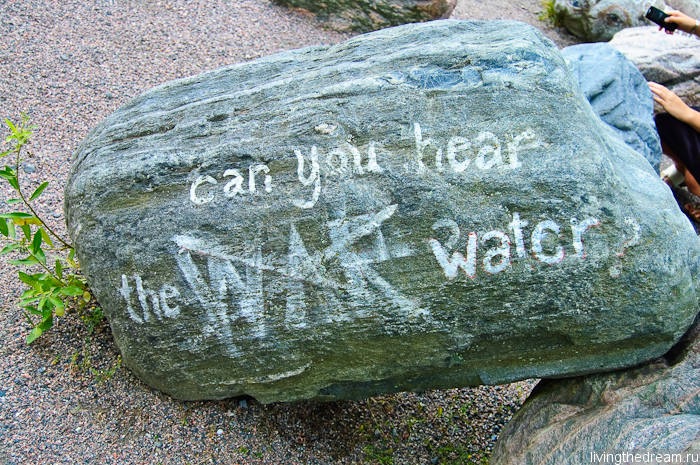 can you hear
the WAR water?
livingthedream.ru